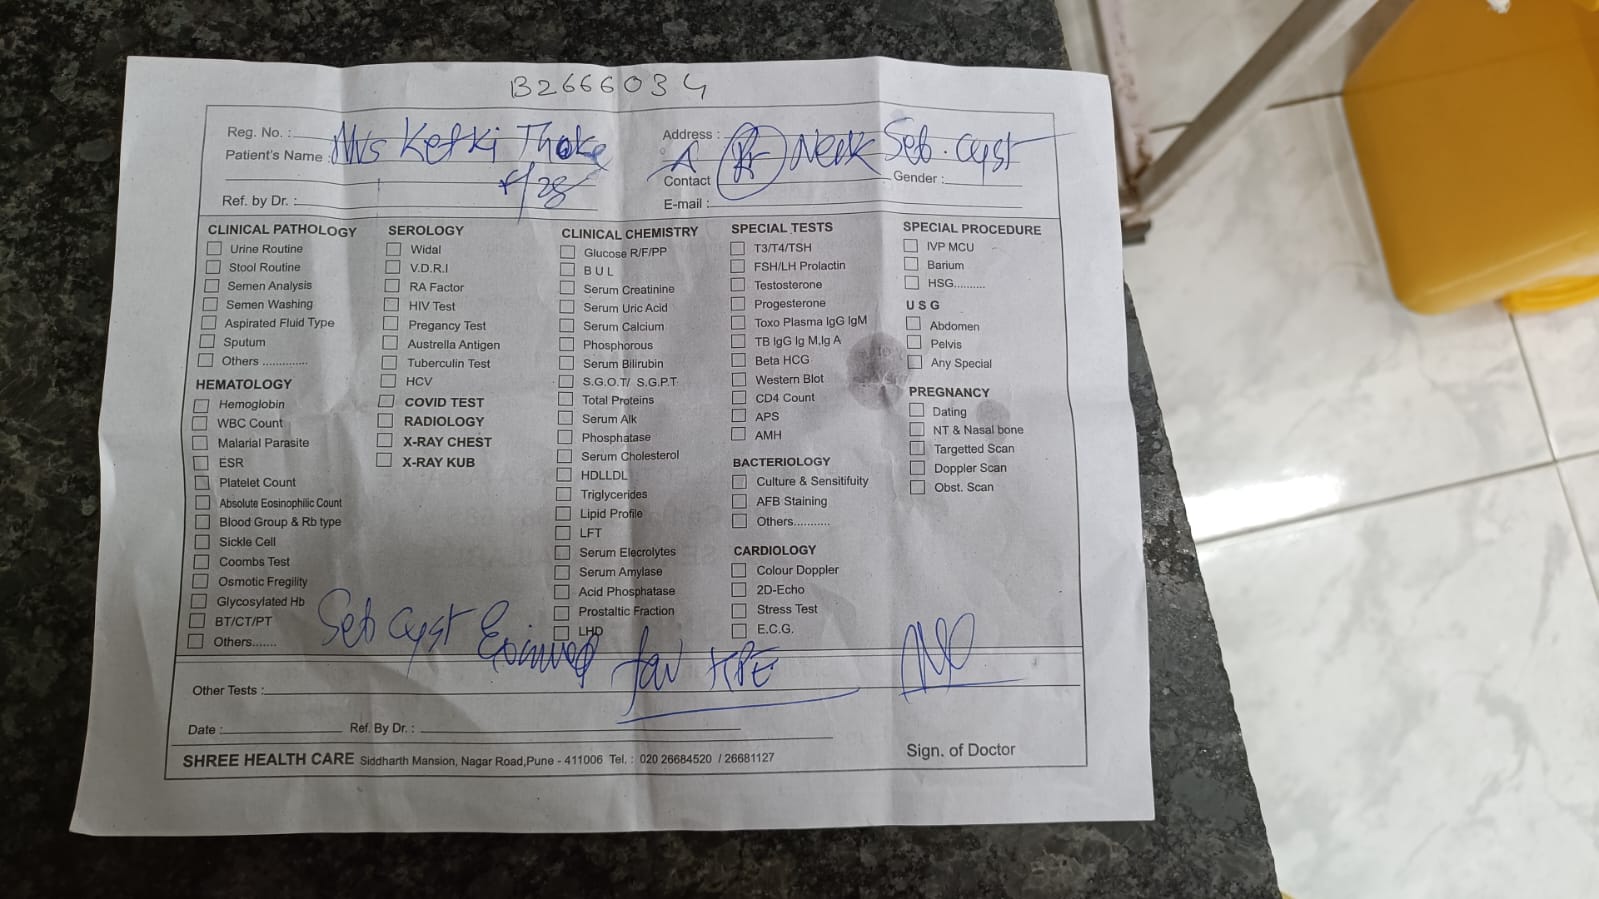 B2666034
Reg. No. :
Patient's Name : Mrs Ketki Thoke
F/28
Ref. by Dr. :
Address :
Δ Rt Neck Seb. cyst
Contact
Gender :
E-mail :
CLINICAL PATHOLOGY
Urine Routine
Stool Routine
Semen Analysis
Semen Washing
Aspirated Fluid Type
Sputum
Others ..............
HEMATOLOGY
Hemoglobin
WBC Count
Malarial Parasite
ESR
Platelet Count
Absolute Eosinophilic Count
Blood Group & Rb type
Sickle Cell
Coombs Test
Osmotic Fregility
Glycosylated Hb
BT/CT/PT
Others.......
SEROLOGY
Widal
V.D.R.I
RA Factor
HIV Test
Pregancy Test
Austrella Antigen
Tuberculin Test
HCV
COVID TEST
RADIOLOGY
X-RAY CHEST
X-RAY KUB
CLINICAL CHEMISTRY
Glucose R/F/PP
B U L
Serum Creatinine
Serum Uric Acid
Serum Calcium
Phosphorous
Serum Bilirubin
S.G.O.T/ S.G.P.T
Total Proteins
Serum Alk
Phosphatase
Serum Cholesterol
HDLLDL
Triglycerides
Lipid Profile
LFT
Serum Elecrolytes
Serum Amylase
Acid Phosphatase
Prostaltic Fraction
LHD
SPECIAL TESTS
T3/T4/TSH
FSH/LH Prolactin
Testosterone
Progesterone
Toxo Plasma IgG IgM
TB IgG Ig M,Ig A
Beta HCG
Western Blot
CD4 Count
APS
AMH
BACTERIOLOGY
Culture & Sensitifuity
AFB Staining
Others...........
CARDIOLOGY
Colour Doppler
2D-Echo
Stress Test
E.C.G.
SPECIAL PROCEDURE
IVP MCU
Barium
HSG..........
U S G
Abdomen
Pelvis
Any Special
PREGNANCY
Dating
NT & Nasal bone
Targetted Scan
Doppler Scan
Obst. Scan
Seb cyst Excised for HPE
Other Tests :
Date :
Ref. By Dr. :
Sign. of Doctor
SHREE HEALTH CARE Siddharth Mansion, Nagar Road,Pune - 411006 Tel. : 020 26684520 / 26681127